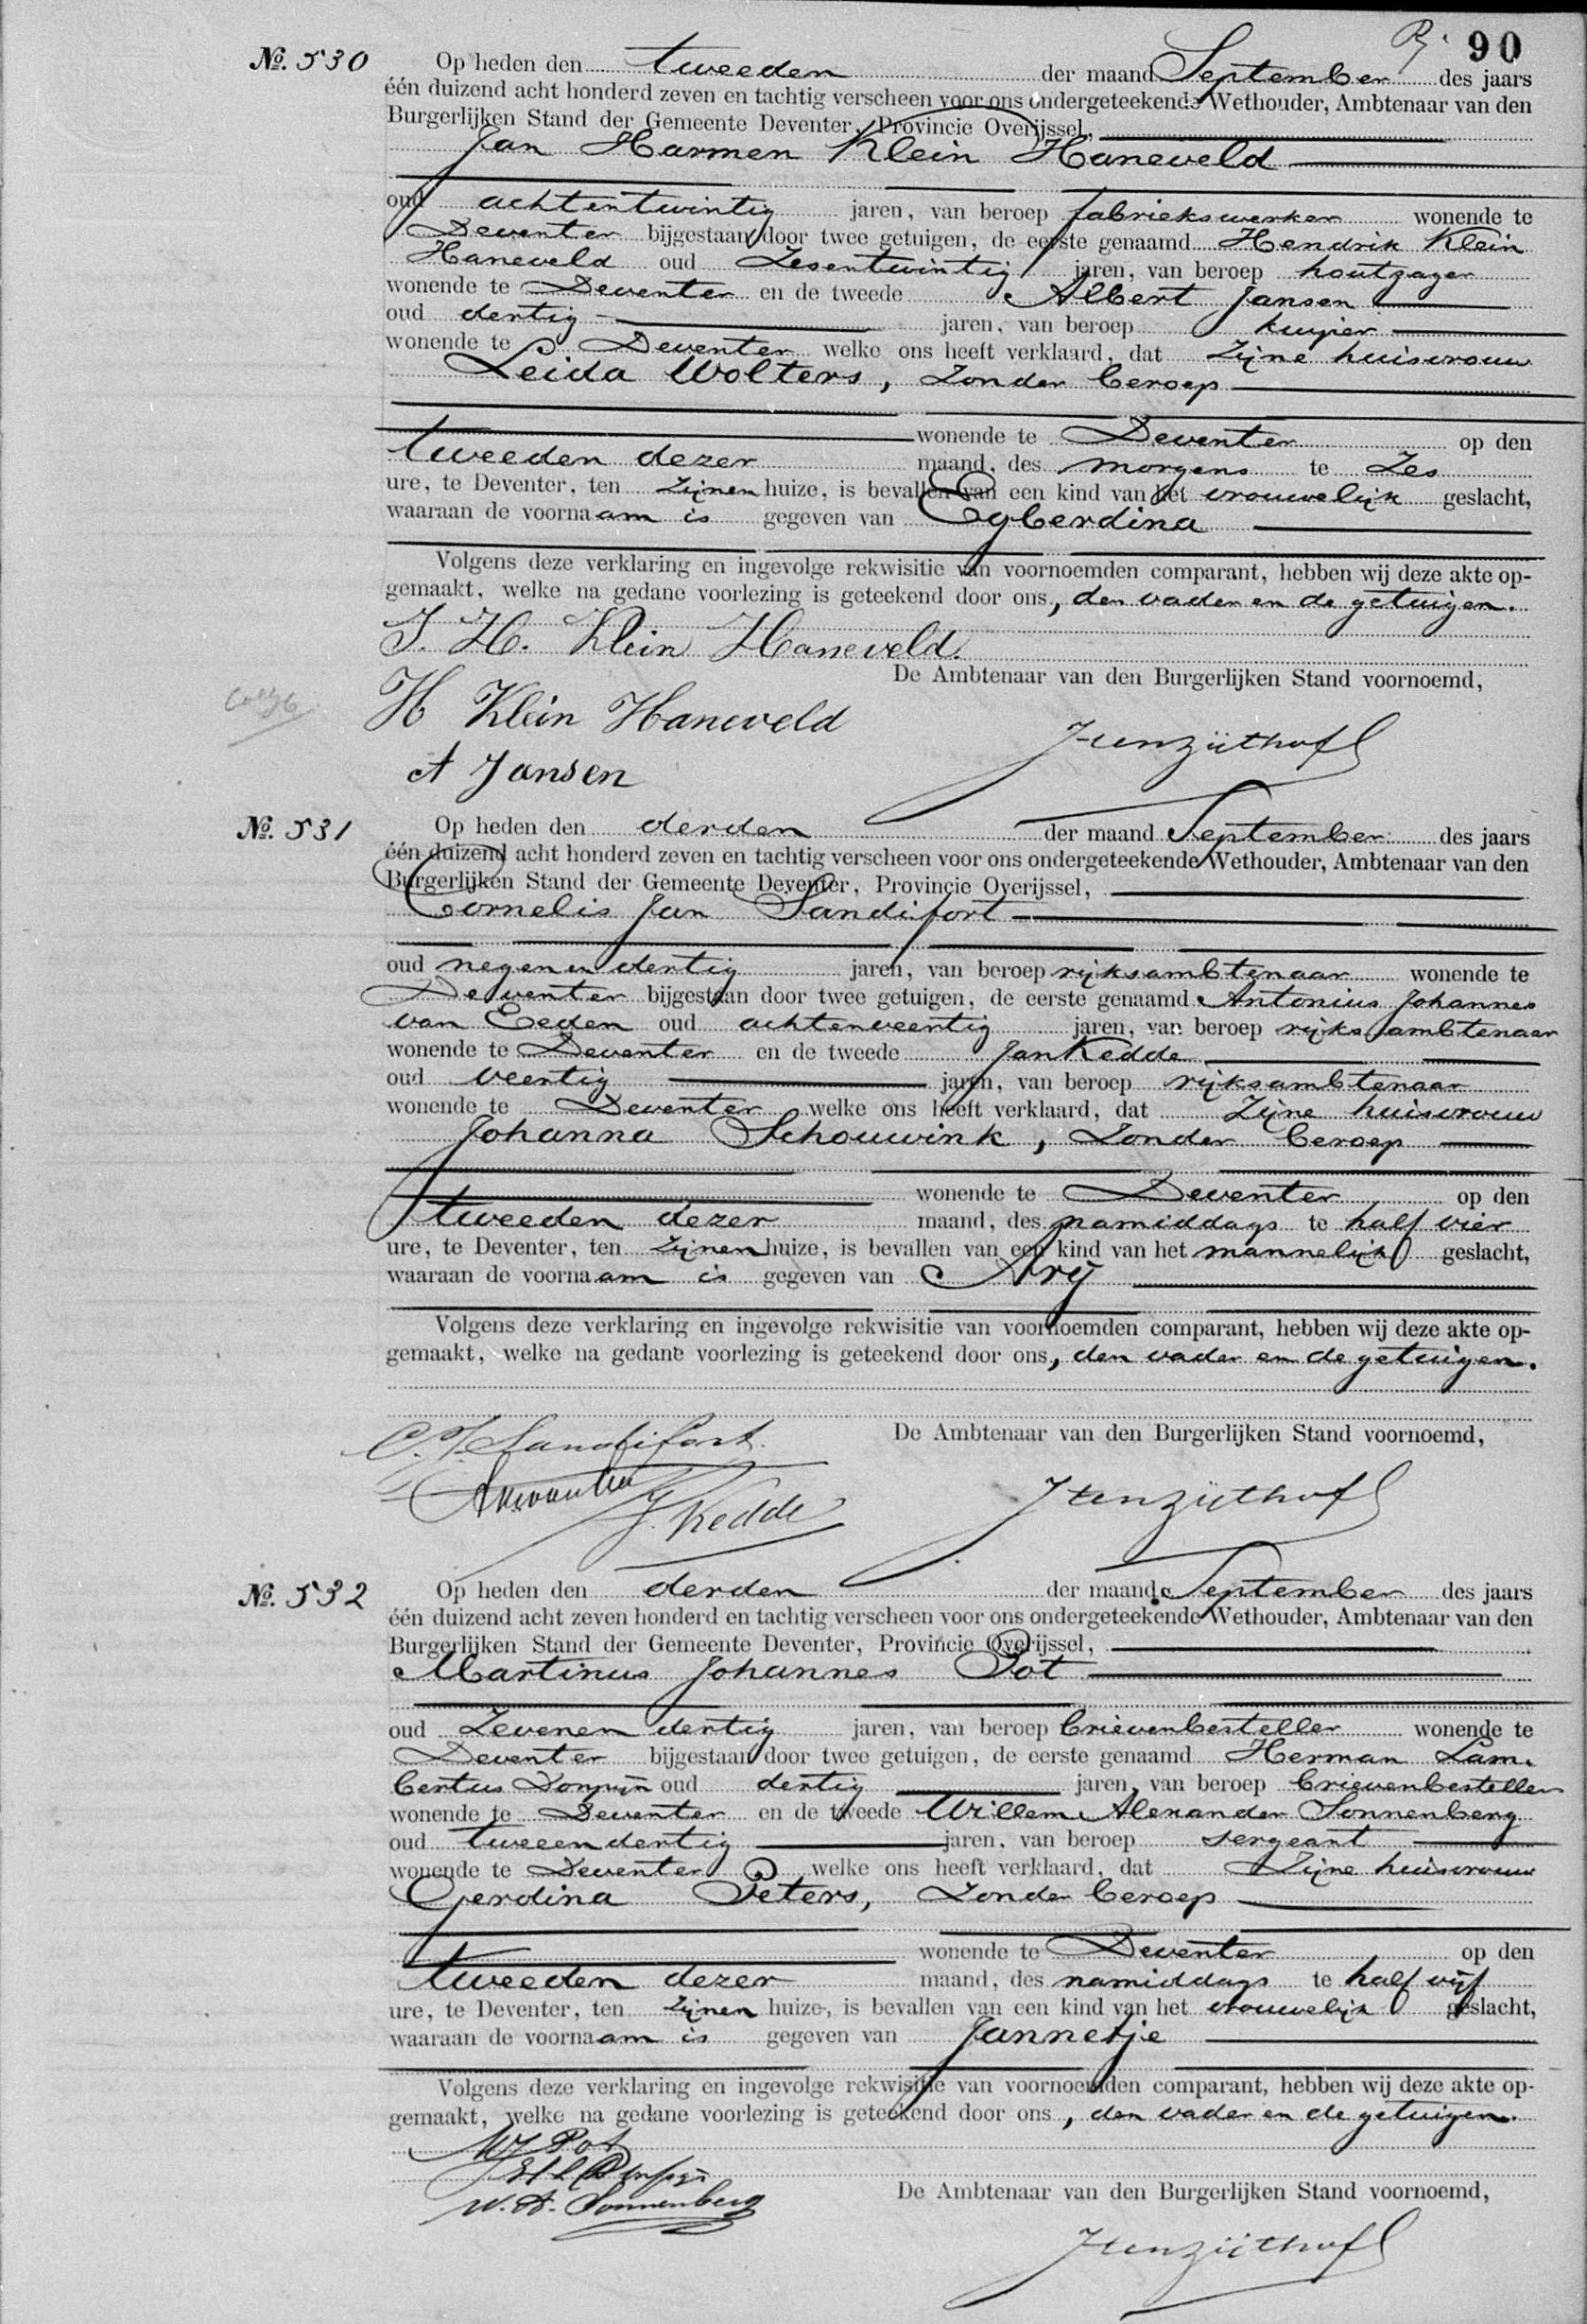 90
No. 530 Op heden den tweeden der maand September des jaars
één duizend acht honderd zeven en tachtig verscheen voor ons ondergeteekende Wethouder, Ambtenaar van den
Burgerlijken Stand der Gemeente Deventer, Provincie Overijssel,
Jan Harmen Klein Haneveld
oud achtentwintig jaren, van beroep fabriekswerker wonende te
Deventer bijgestaan door twee getuigen, de eerste genaamd Hendrik Klein
Haneveld oud Zesentwintig jaren, van beroep houtzager
wonende te Deventer en de tweede Albert Jansen
oud dertig jaren, van beroep kuiper
wonende te Deventer welke ons heeft verklaard, dat Zijne huisvrouw
Leida Wolters, Zonder beroep
wonende te Deventer op den
tweeden dezer maand, des morgens te Zes
ure, te Deventer, ten Zijnen huize, is bevallen van een kind van het vrouwelijk geslacht,
waaraan de voornaam is gegeven van Egberdina
Volgens deze verklaring en ingevolge rekwisitie van voornoemden comparant, hebben wij deze akte op-
gemaakt, welke na gedane voorlezing is geteekend door ons, den vader en de getuigen.
J. H. Klein Haneveld.
De Ambtenaar van den Burgerlijken Stand voornoemd,
H Klein Haneveld
A Jansen
No. 531 Op heden den derden der maand September des jaars
één duizend acht honderd zeven en tachtig verscheen voor ons ondergeteekende Wethouder, Ambtenaar van den
Burgerlijken Stand der Gemeente Deventer, Provincie Overijssel,
Cornelis Jan Sandifort
oud negenendertig jaren, van beroep rijksambtenaar wonende te
Deventer bijgestaan door twee getuigen, de eerste genaamd Antonius Johannes
van Eeden oud achtenveertig jaren, van beroep rijksambtenaar
wonende te Deventer en de tweede Jan Kedde
oud veertig jaren, van beroep rijksambtenaar
wonende te Deventer welke ons heeft verklaard, dat Zijne huisvrouw
Johanna Schouwink, Zonder beroep
wonende te Deventer op den
tweeden dezer maand, des namiddags te half vier
ure, te Deventer, ten Zijnen huize, is bevallen van een kind van het mannelijk geslacht,
waaraan de voornaam is gegeven van Arij
Volgens deze verklaring en ingevolge rekwisitie van voornoemden comparant, hebben wij deze akte op-
gemaakt, welke na gedane voorlezing is geteekend door ons, den vader en de getuigen.
De Ambtenaar van den Burgerlijken Stand voornoemd,
C. J. Sandifort.
J. Kedde
No. 532 Op heden den derden der maand September des jaars
één duizend acht zeven honderd en tachtig verscheen voor ons ondergeteekende Wethouder, Ambtenaar van den
Burgerlijken Stand der Gemeente Deventer, Provincie Overijssel,
Martinus Johannes Pot
oud Zevenendertig jaren, van beroep brievenbesteller wonende te
Deventer bijgestaan door twee getuigen, de eerste genaamd Herman Lam-
bertus Dompijn oud dertig jaren, van beroep brievenbesteller
wonende te Deventer en de tweede Willem Alexander Sonnenberg
oud tweeendertig jaren, van beroep sergeant
wonende te Deventer welke ons heeft verklaard, dat Zijne huisvrouw
Gerdina Peters, Zonder beroep
wonende te Deventer op den
tweeden dezer maand, des namiddags te half vijf
ure, te Deventer, ten Zijnen huize, is bevallen van een kind van het vrouwelijk geslacht,
waaraan de voornaam is gegeven van Jannetje
Volgens deze verklaring en ingevolge rekwisitie van voornoemden comparant, hebben wij deze akte op-
gemaakt, welke na gedane voorlezing is geteekend door ons, den vader en de getuigen.
MJ Pot
W. A. Sonnenberg
De Ambtenaar van den Burgerlijken Stand voornoemd,